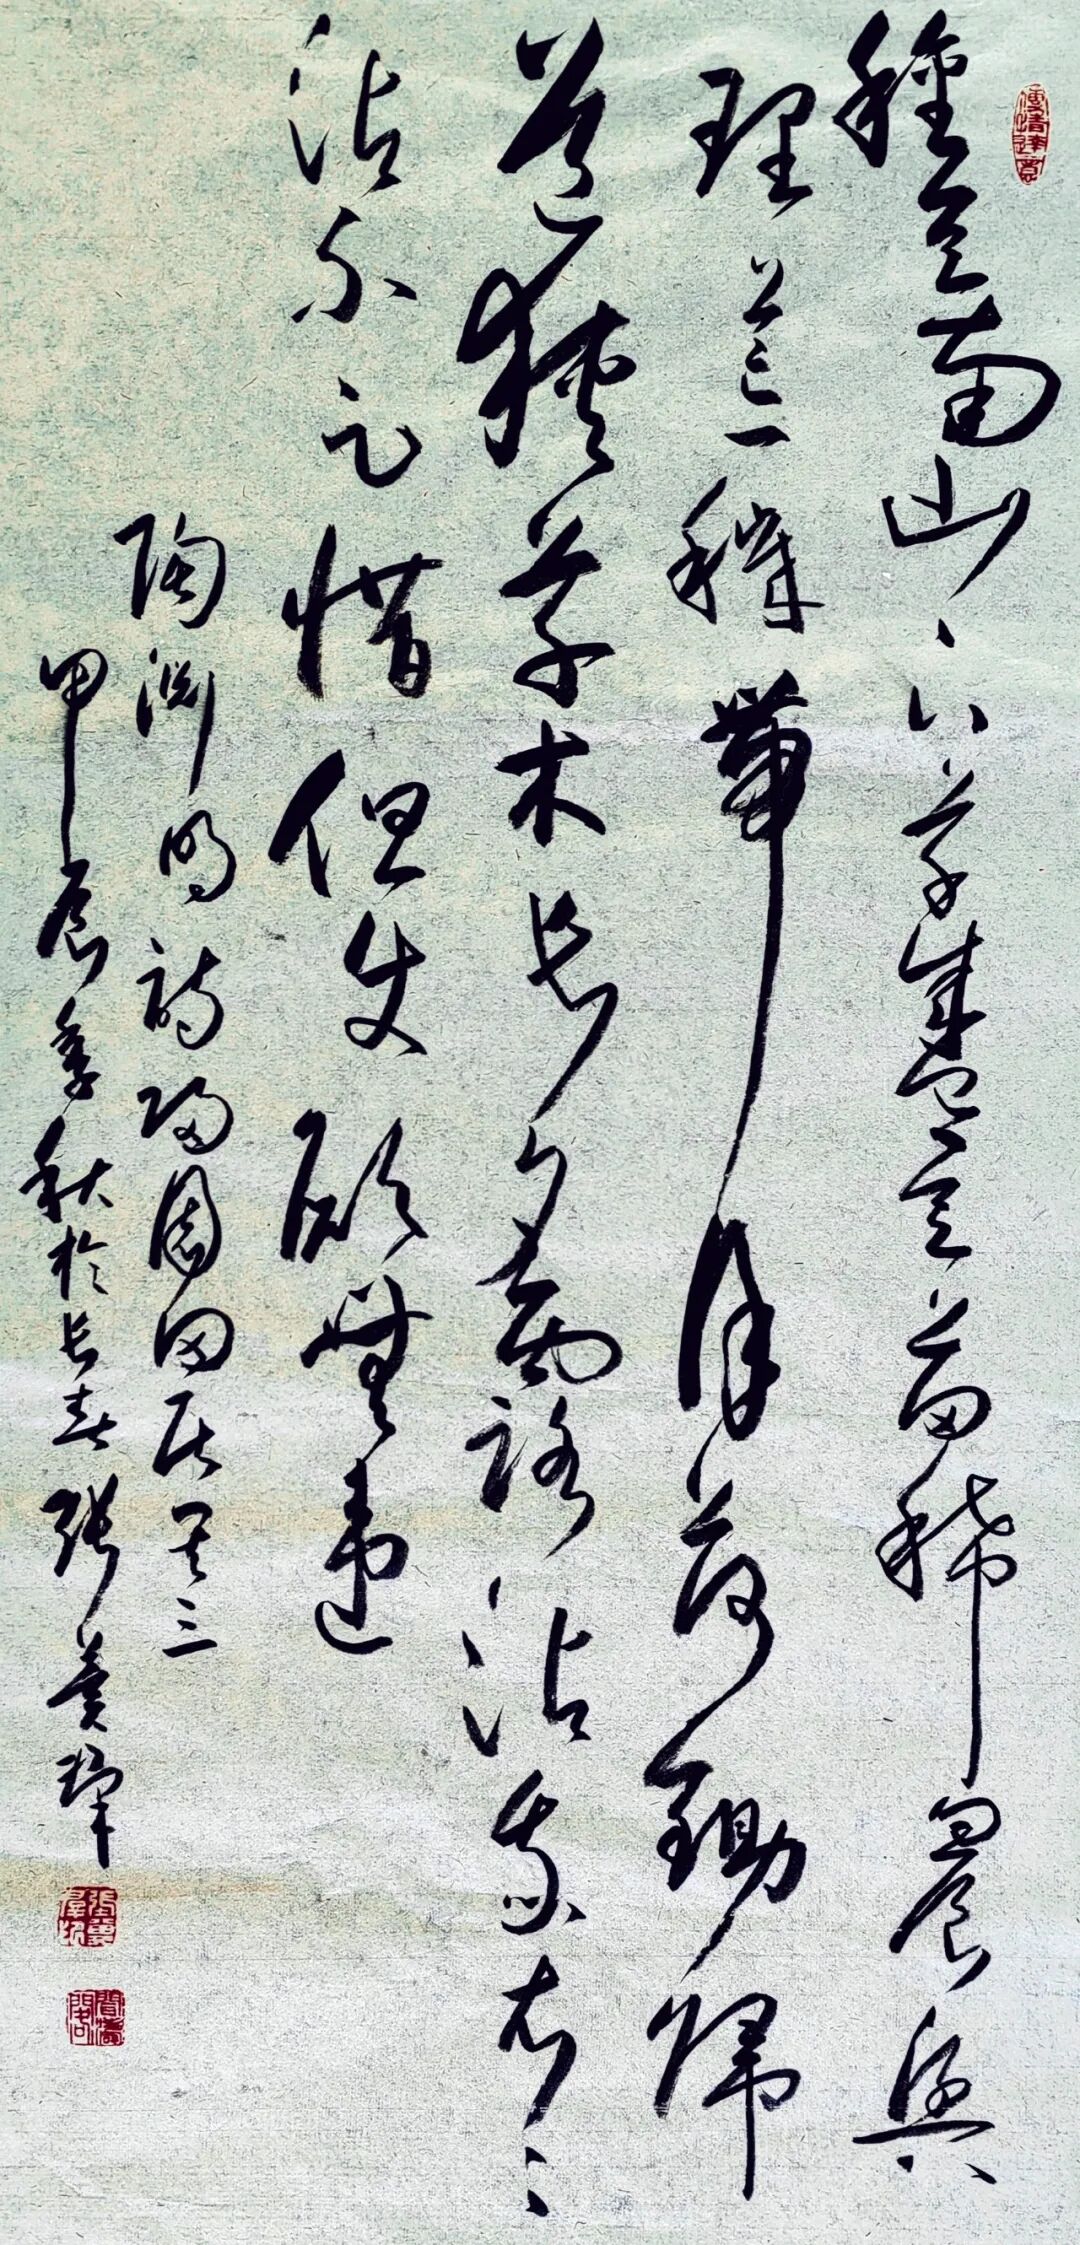 傳情達意
種豆南山下草盛豆苗稀晨興
理荒穢帶月荷鋤歸
道狹草木長夕露沾我衣々
沾不足惜但使願無違
陶淵明詩歸園田居其三
甲辰季秋於長春張